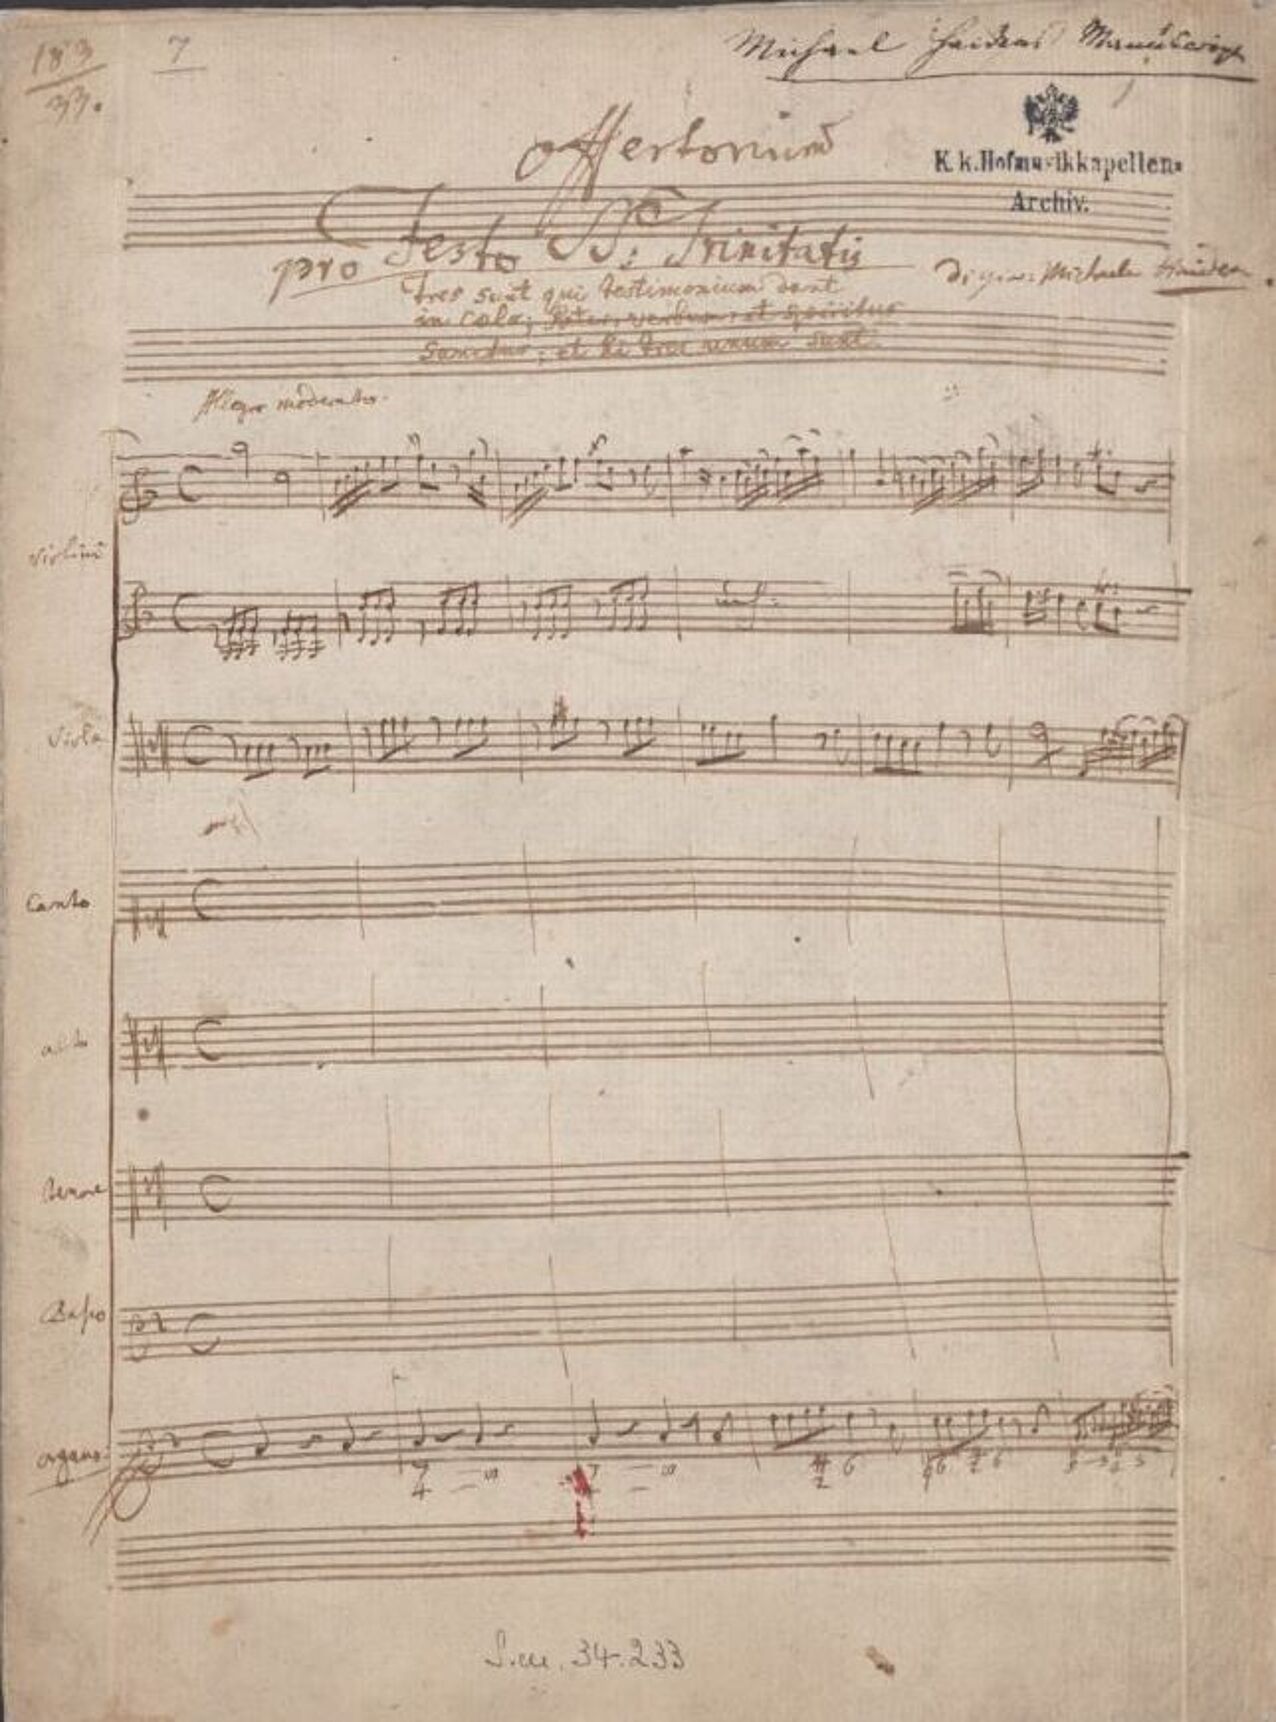 183
33.
7
Michael Haidens Manuscript
K. k. Hofmusikkapellen-
Archiv.
Offertorium
pro Festo SS: Trinitatis
Michaele Haiden
Tres sunt qui testimonium dant
in Cœlo; Pater, verbum, et spiritus
Sanctus; et hi tres unum sunt.
Allegro moderato.
Violini
Viola
Canto
alto
tenore
Basso
organo
7
4
7
6
6
6
S.m. 34.233